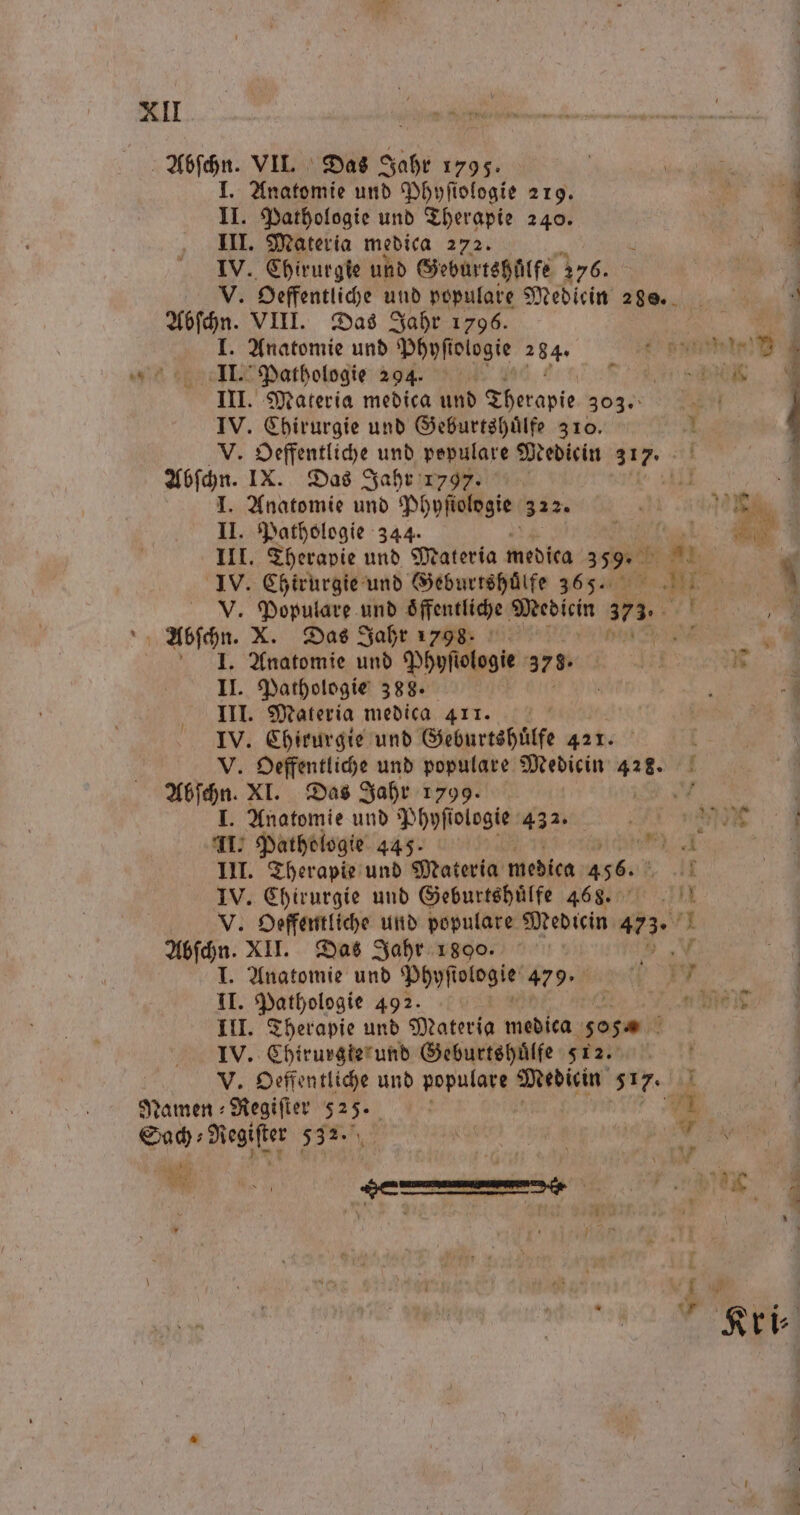 XII
Abſchn. VII. Das Jahr 1795.
I. Anatomie und Phyſiologie 219.
II. Pathologie und Therapie 240.
III. Materia medica 272.
IV. Chirurgie und Geburtshuͤlfe 276.
V. Oeffentliche und populare Medicin 280.
Abſchn. VIII. Das Jahr 1796.
I. Anatomie und Phyſiologie 284.
II. Pathologie 294.
III. Materia medica und Therapie 303.
IV. Chirurgie und Geburtshuͤlfe 310.
V. Oeffentliche und populare Medicin 317.
Abſchn. IX. Das Jahr 1797.
I. Anatomie und Phyſiologie 322.
II. Pathologie 344.
III. Therapie und Materia medica 359.
IV. Chirurgie und Geburtshuͤlfe 365.
V. Populare und oͤffentliche Medicin 373.
Abſchn. X. Das Jahr 1798.
I. Anatomie und Phyſiologie 378.
II. Pathologie 388.
III. Materia medica 411.
IV. Chirurgie und Geburtshuͤlfe 421.
V. Oeffentliche und populare Medicin 428.
Abſchn. XI. Das Jahr 1799.
I. Anatomie und Phyſiologie 432.
II. Pathologie 445.
III. Therapie und Materia medica 456.
IV. Chirurgie und Geburtshuͤlfe 468.
V. Oeffentliche und populare Medicin 473.
Abſchn. XII. Das Jahr 1800.
I. Anatomie und Phyſiologie 479.
II. Pathologie 492.
III. Therapie und Materia medica 505.
IV. Chirurgie und Geburtshuͤlfe 512.
V. Oeffentliche und populare Medicin 517.
Namen-Regiſter 525.
Sach-Regiſter 532.
Kri-